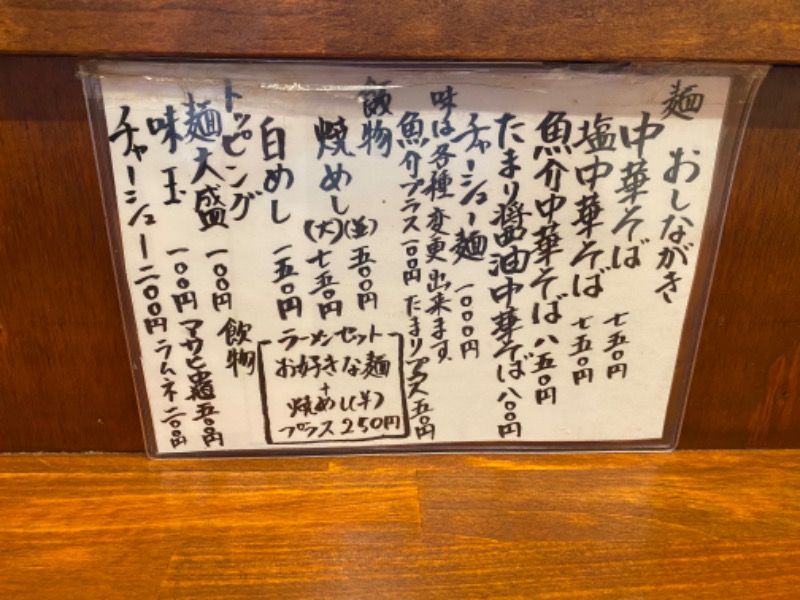 おしながき
麺
中華そば 七五〇円
塩中華そば 七五〇円
魚介中華そば 八五〇円
たまり醤油中華そば 八〇〇円
チャーシュー麺 一〇〇〇円
味は各種変更出来ます。
魚介プラス一〇〇円 たまりプラス五〇円
飯物
焼めし(並) 五〇〇円
(大) 七五〇円
白めし 一五〇円
ラーメンセット
お好きな麺
+
焼めし(半)
プラス250円
トッピング
麺大盛 一〇〇円
味玉 一〇〇円
チャーシュー 二〇〇円
飲物
ラムネ 二〇〇円